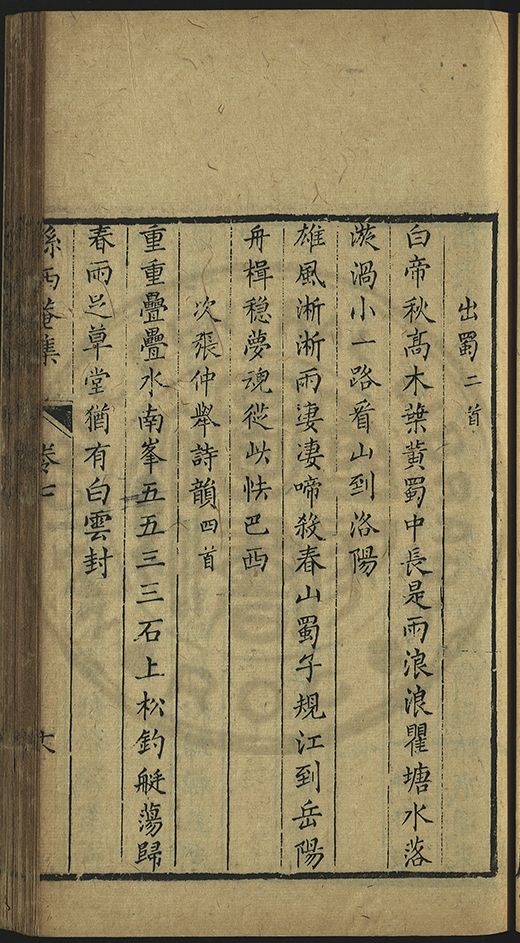 出蜀二首
白帝秋高木葉黃蜀中長是雨浪浪瞿塘水落
漩渦小一路看山到洛陽
雄風淅淅雨凄凄啼殺春山蜀子規江到岳陽
舟楫穏夢魂從此怏巴西
次張仲舉詩韻四首
重重疊疊水南峯五五三三石上松釣艇蕩歸
春雨足草堂猶有白雲封
孫西菴集
卷七